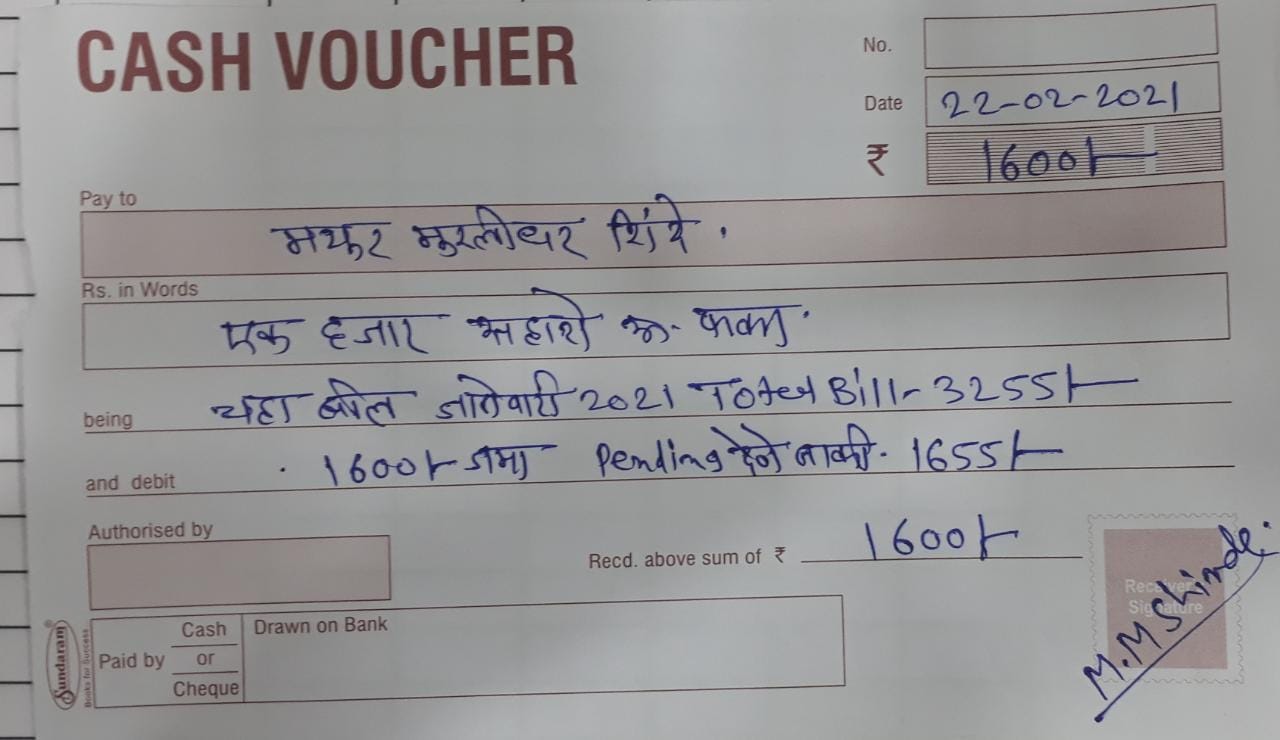 CASH VOUCHER
No.
Date 22-02-2021
₹ 1600/-
Pay to
मयुर मुरलीधर शिंदे.
Rs. in Words
एक हजार सहाशे रु. फक्त.
being चहा बील जानेवारी 2021 Total Bill- 3255/-
and debit . 1600/- जमा Pending देने बाकी. 1655/-
Authorised by
Recd. above sum of ₹ 1600/-
Receiver's Signature
M.M Shinde.
Sundaram®
Books for Success
Paid by Cash or Cheque
Drawn on Bank